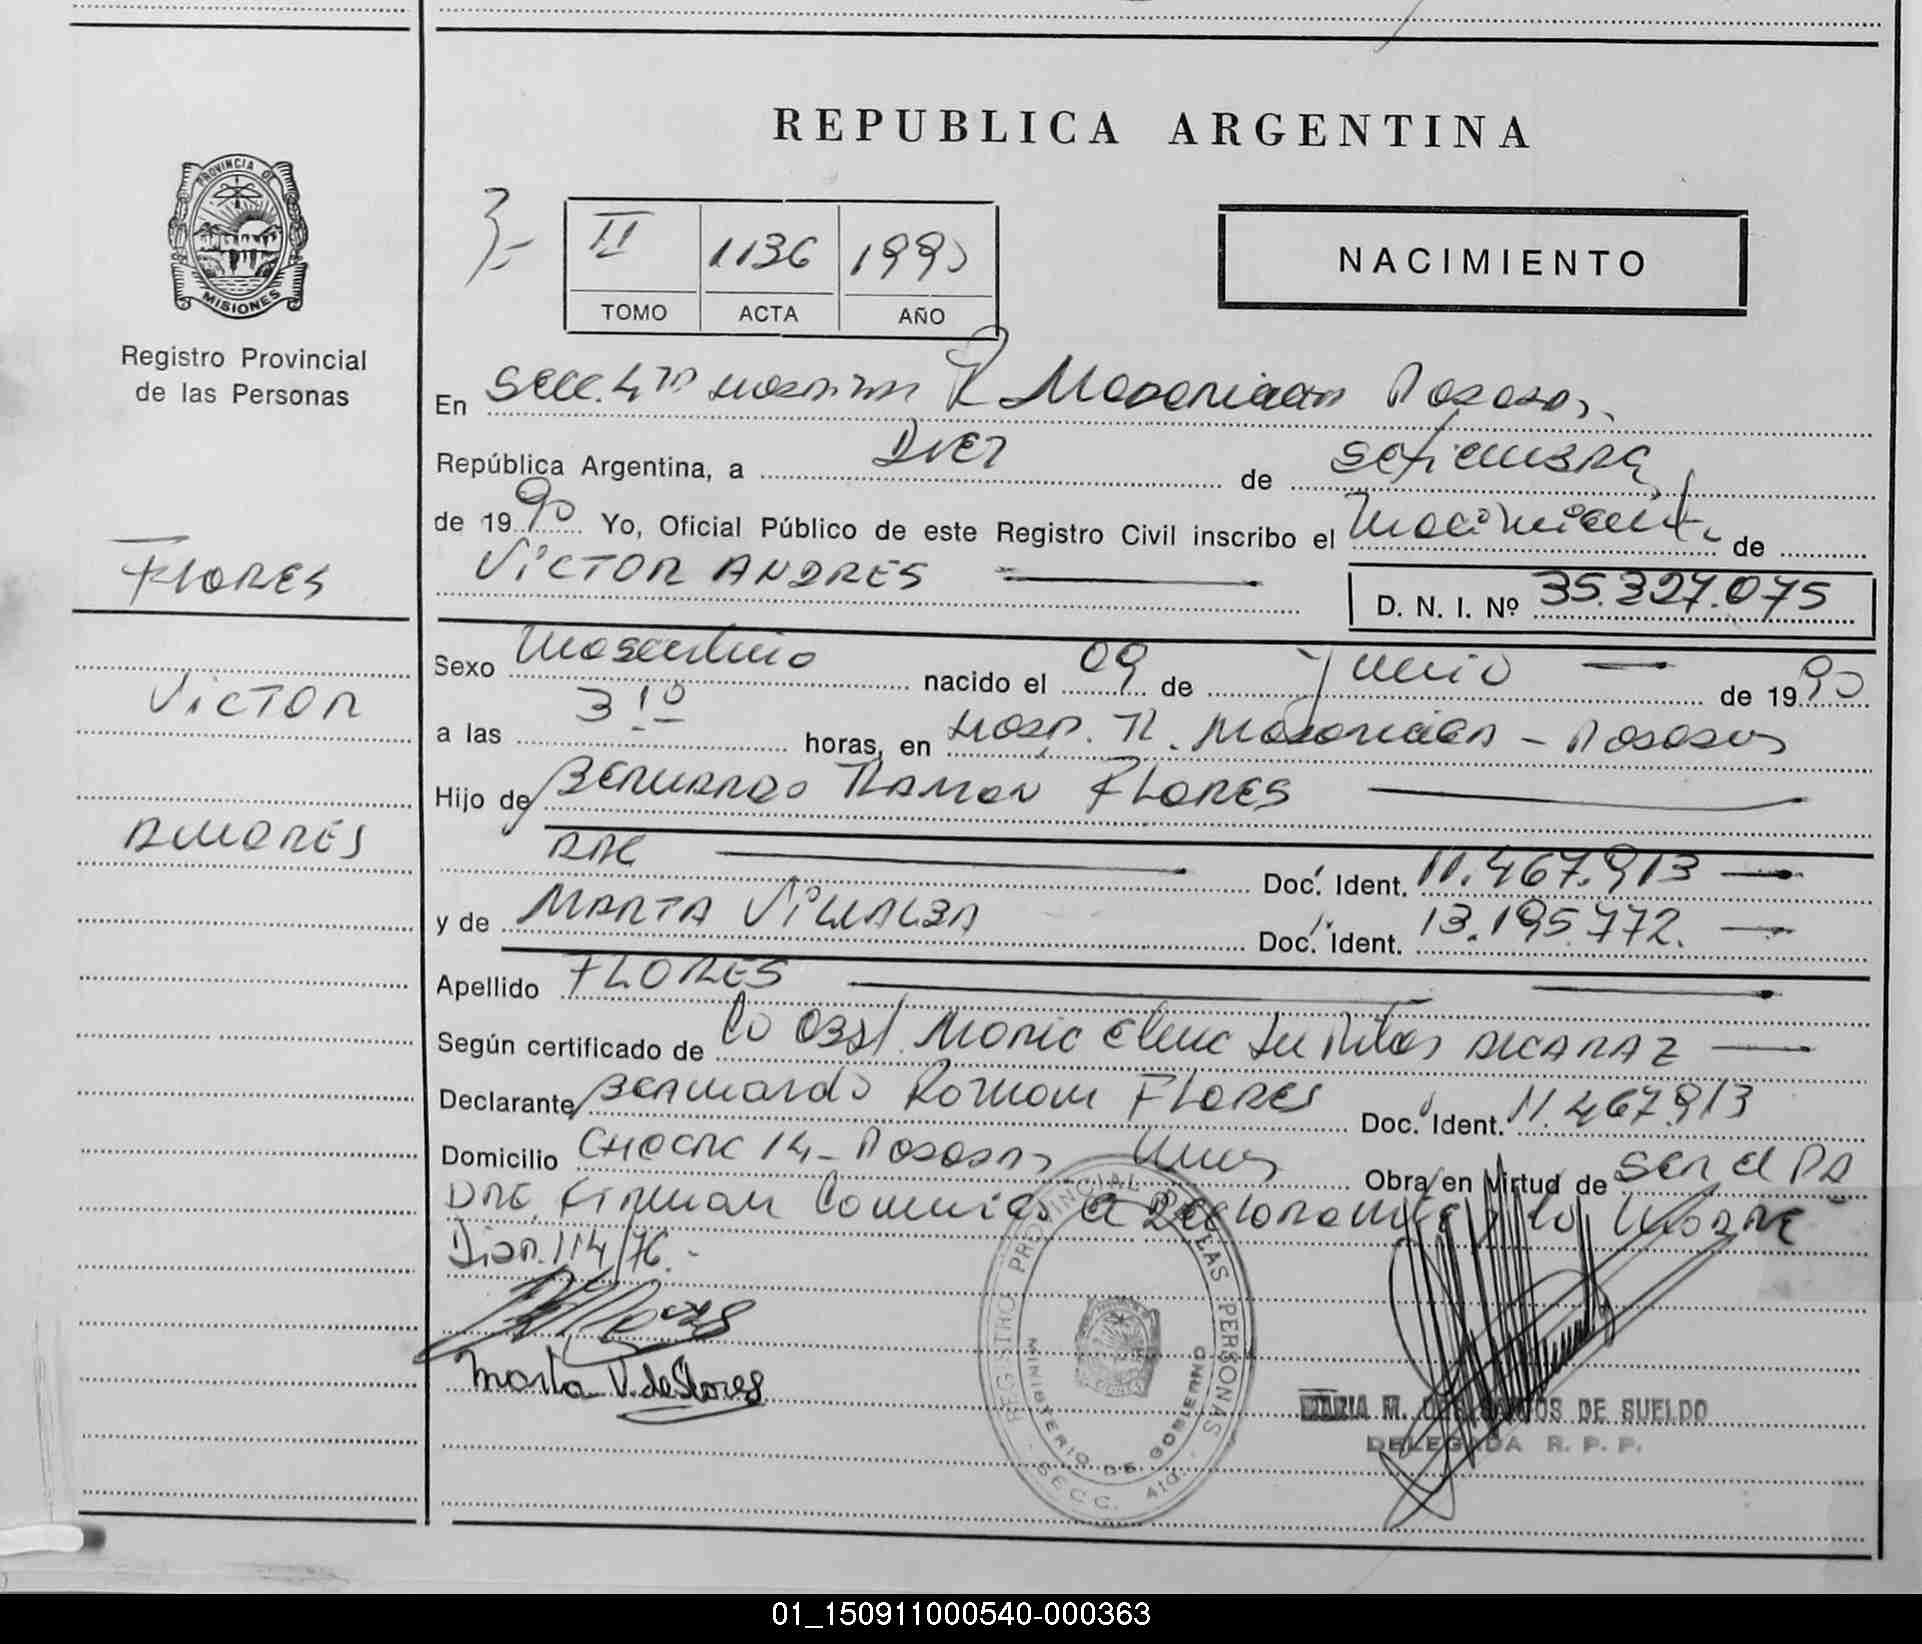 REPUBLICA ARGENTINA
PROVINCIA DE MISIONES
Registro Provincial
de las Personas
3-
II 1136 1990
TOMO ACTA AÑO
NACIMIENTO
En Secc. 4ta Hospital R. Madariaga Posadas
República Argentina, a Diez de Setiembre
de 1990 Yo, Oficial Público de este Registro Civil inscribo el Nacimiento de
VICTOR ANDRES
D. N. I. Nº 35.327.075
FLORES
VICTOR
ANDRES
Sexo Masculino nacido el 09 de Junio de 1990
a las 3 10 horas, en Hosp. R. Madariaga - Posadas
Hijo de BERNARDO RAMON FLORES
Doc. Ident. 11.467.913
y de MARTA VILLALBA Doc. Ident. 13.195.772.
Apellido FLORES
Según certificado de Obst. ALCARAZ
Declarante Bernardo Ramon FLORES Doc. Ident. 11.467.913
Domicilio CHACRA 14 - Posadas Mnes Obra en Virtud de Ser el PA
DRE. Firman Conmigo el Declarante y la MADRE
Disp. 114/76.-
Marta V. de Flores
REGISTRO PROVINCIAL DE LAS PERSONAS
MINISTERIO DE GOBIERNO
SECC. 4ta.
MARIA M. DE SUELDO
DELEGADA R. P. P.
01_150911000540-000363